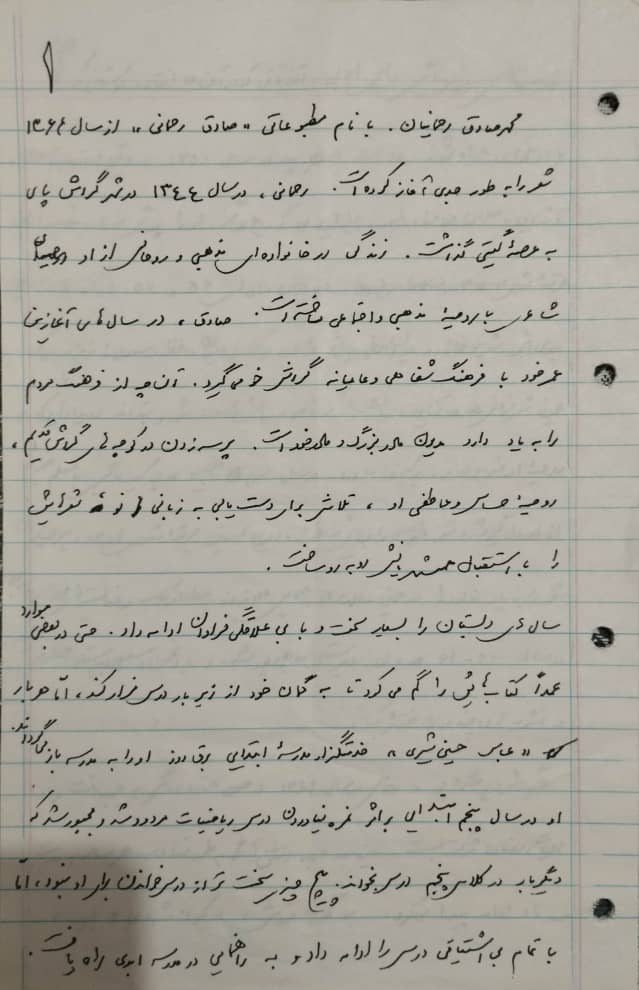 ۱
محمدصادق رحمانیان. با نام مطبوعاتی «صادق رحمانی» از سال ۱۳۶۴
شعر را به طور جدی آغاز کرده است. رحمانی، در سال ۱۳۴۴ در شهر گراش پای
به عرصهٔ گیتی گذاشت. زندگی در خانواده‌ای مذهبی و روحانی از او
شاعری با روحیهٔ مذهبی و اجتماعی ساخته است. صادق، در سال‌های آغازین
عمر خود با فرهنگ شفاهی و عامیانه گراش خو می‌گیرد. آن چه از فرهنگ مردم
را به یاد دارد مدیون مادربزرگ و مادر خود است. پرسه زدن در کوچه‌های گراش قدیم،
روحیهٔ حساس و عاطفی او، تلاش برای دست یابی به زبانی نو شعرهایش
را با استقبال همشهریانش روبه رو ساخت.
سال‌های دبستان را بسیار سخت و با بی علاقگی فراوان ادامه داد. حتی در بعضی موارد
عمداً کتاب‌هایش را گم می‌کرد تا به گمان خود از زیر بار درس فرار کند، امّا هر بار
«عباس حسینی شیری» خدمتگزار مدرسهٔ ابتدایی برق روز او را به مدرسه باز می‌گرداند.
او در سال پنجم ابتدایی براثر نمره نیاوردن درس ریاضیات مردود شد و مجبور شد که
دیگر بار در کلاس پنجم درس بخواند. هیچ چیزی سخت تر از درس خواندن برای او نبود، امّا
با تمام بی اشتیاقی درس را ادامه داد و به راهنمایی در مدرسه ابدی راه یافت.